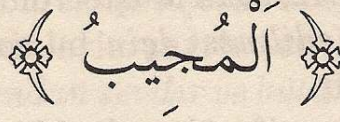 اَلْمُجِيبُ